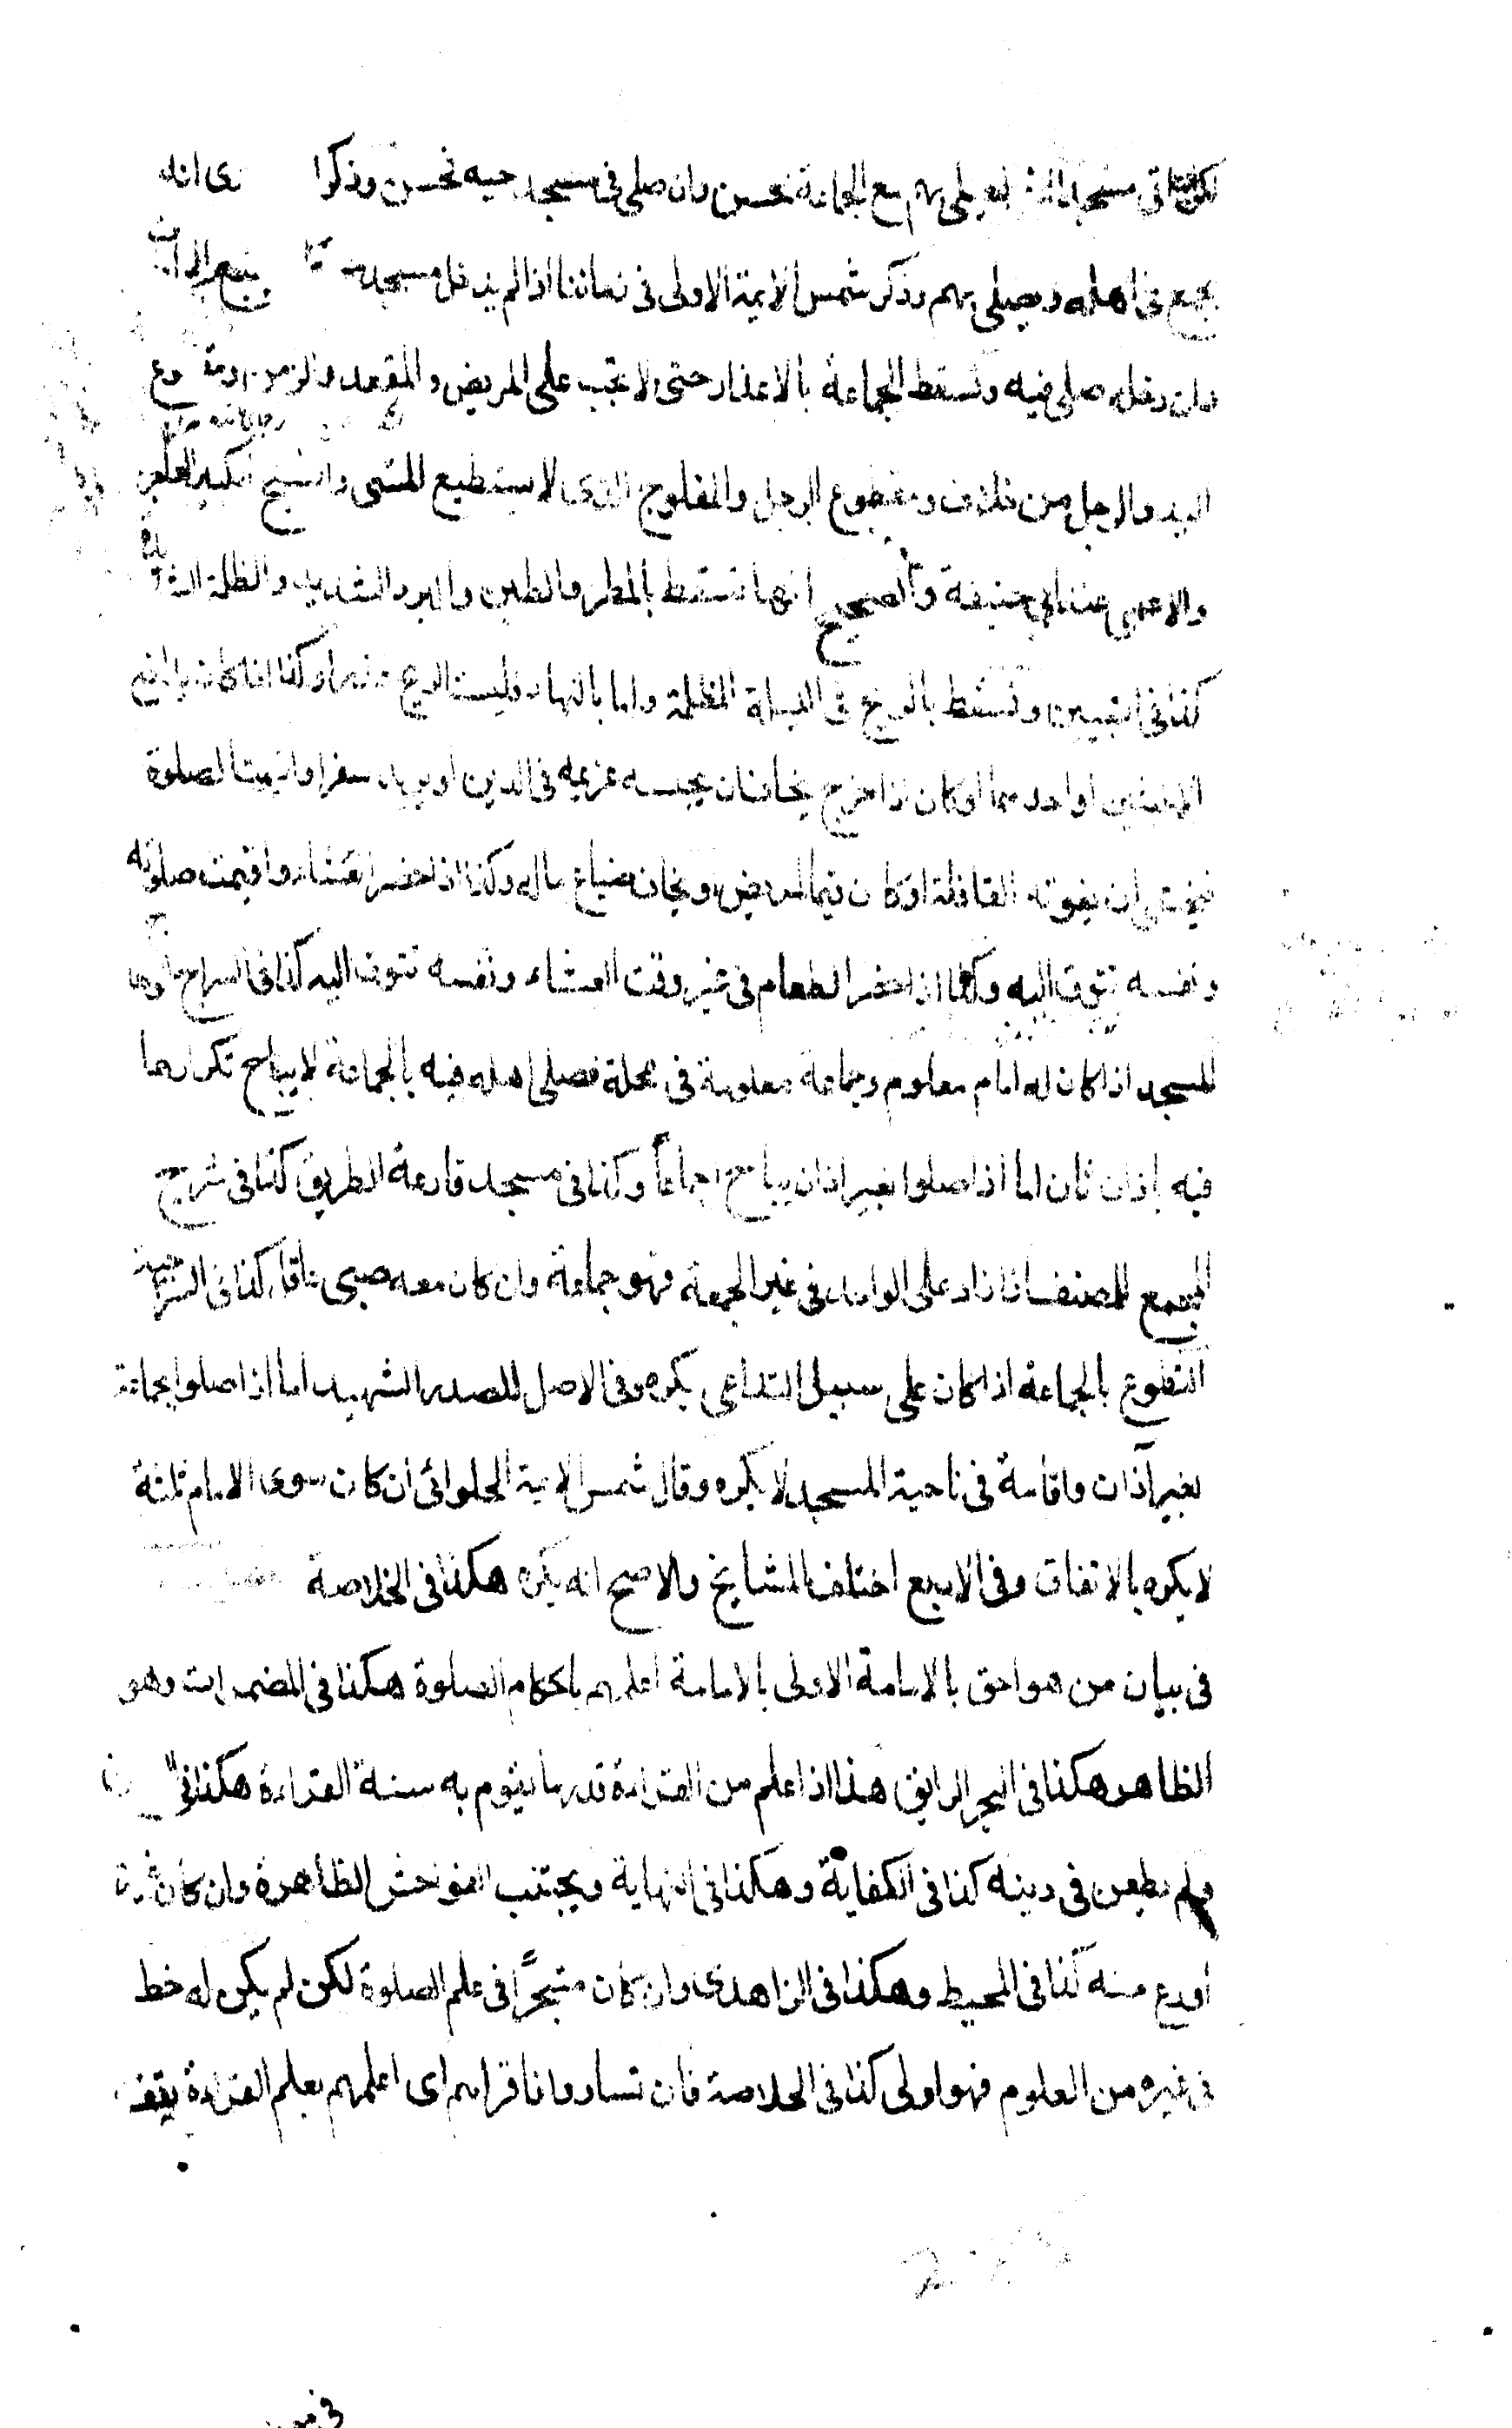 لكن ان اتى مسجدا اخر ليصلى بهم مع الجماعة فحسن وان صلى فى مسجد حيه فحسن وذكر القدورى انه
يجمع فى اهله ويصلى بهم وذكر شمس الايمة الاولى فى زماننا اذا لم يدخل مسجد يتبع الجماعات
وان دخله صلى فيه وتسقط الجماعة بالاعذار حتى لا تجب على المريض والمقعد والزمن ومقطوع
اليد والرجل من خلاف ومقطوع الرجل والمفلوج الذى لا يستطيع المشى والشيخ الكبير العاجز
والاعمى عند ابى حنيفة والصحيح انها تسقط بالمطر والطين والبرد الشديد والظلمة الشديدة
كذا فى التبيين وتسقط بالريح فى الليلة المظلمة واما بالنهار فليست الريح عذرا وكذا اذا كان يدافع
الاخبثين او احدهما او كان اذا خرج يخاف ان يحبسه غريمه فى الدين او يريد سفرا واقيمت الصلوة
فيخشى ان يفوته القافلة او كان قيما لمريض او يخاف ضياع ماله وكذا اذا حضر العشاء واقيمت صلوته
ونفسه تتوق اليه وكذا اذا حضر الطعام فى غير وقت العشاء ونفسه تتوق اليه كذا فى السراج الوهاج
المسجد اذا كان له امام معلوم وجماعة معلومة فى محلة فصلى اهله فيه بالجماعة لا يباح تكرارها
فيه باذان ثان اما اذا صلوا بغير اذان يباح اجماعاً وكذا فى مسجد قارعة الطريق كذا فى شرح
المجمع للمصنف اذا زاد على الواحد فى غير الجمعة فهو جماعة وان كان معه صبى عاقل كذا فى السراجية
التطوع بالجماعة اذا كان على سبيل التداعى يكره وفى الاصل للصدر الشهيد اما اذا صلوا بجماعة
بغير آذان واقامة فى ناحية المسجد لا يكره وقال شمس الايمة الحلوائى ان كان سوى الامام ثلثة
لا يكره بالاتفاق وفى الاربع اختلف المشايخ والاصح انه يكره هكذا فى الخلاصة
فى بيان من هو احق بالامامة الاولى بالامامة اعلمهم باحكام الصلوة هكذا فى المضمرات وهو
الظاهر هكذا فى البحر الرايق هذا اذا علم من القراءة قدر ما يقوم به سنة القراءة هكذا فى
ولم يطعن فى دينه كذا فى الكفاية وهكذا فى النهاية ويجتنب الفواحش الظاهرة وان كان غيره
اورع منه كذا فى المحيط وهكذا فى الزاهدى وان كان متبحرًا فى علم الصلوة لكن لم يكن له حظ
فى غيره من العلوم فهو اولى كذا فى الخلاصة فان تساووا فاقراهم اى اعلمهم بعلم القراءة يقف